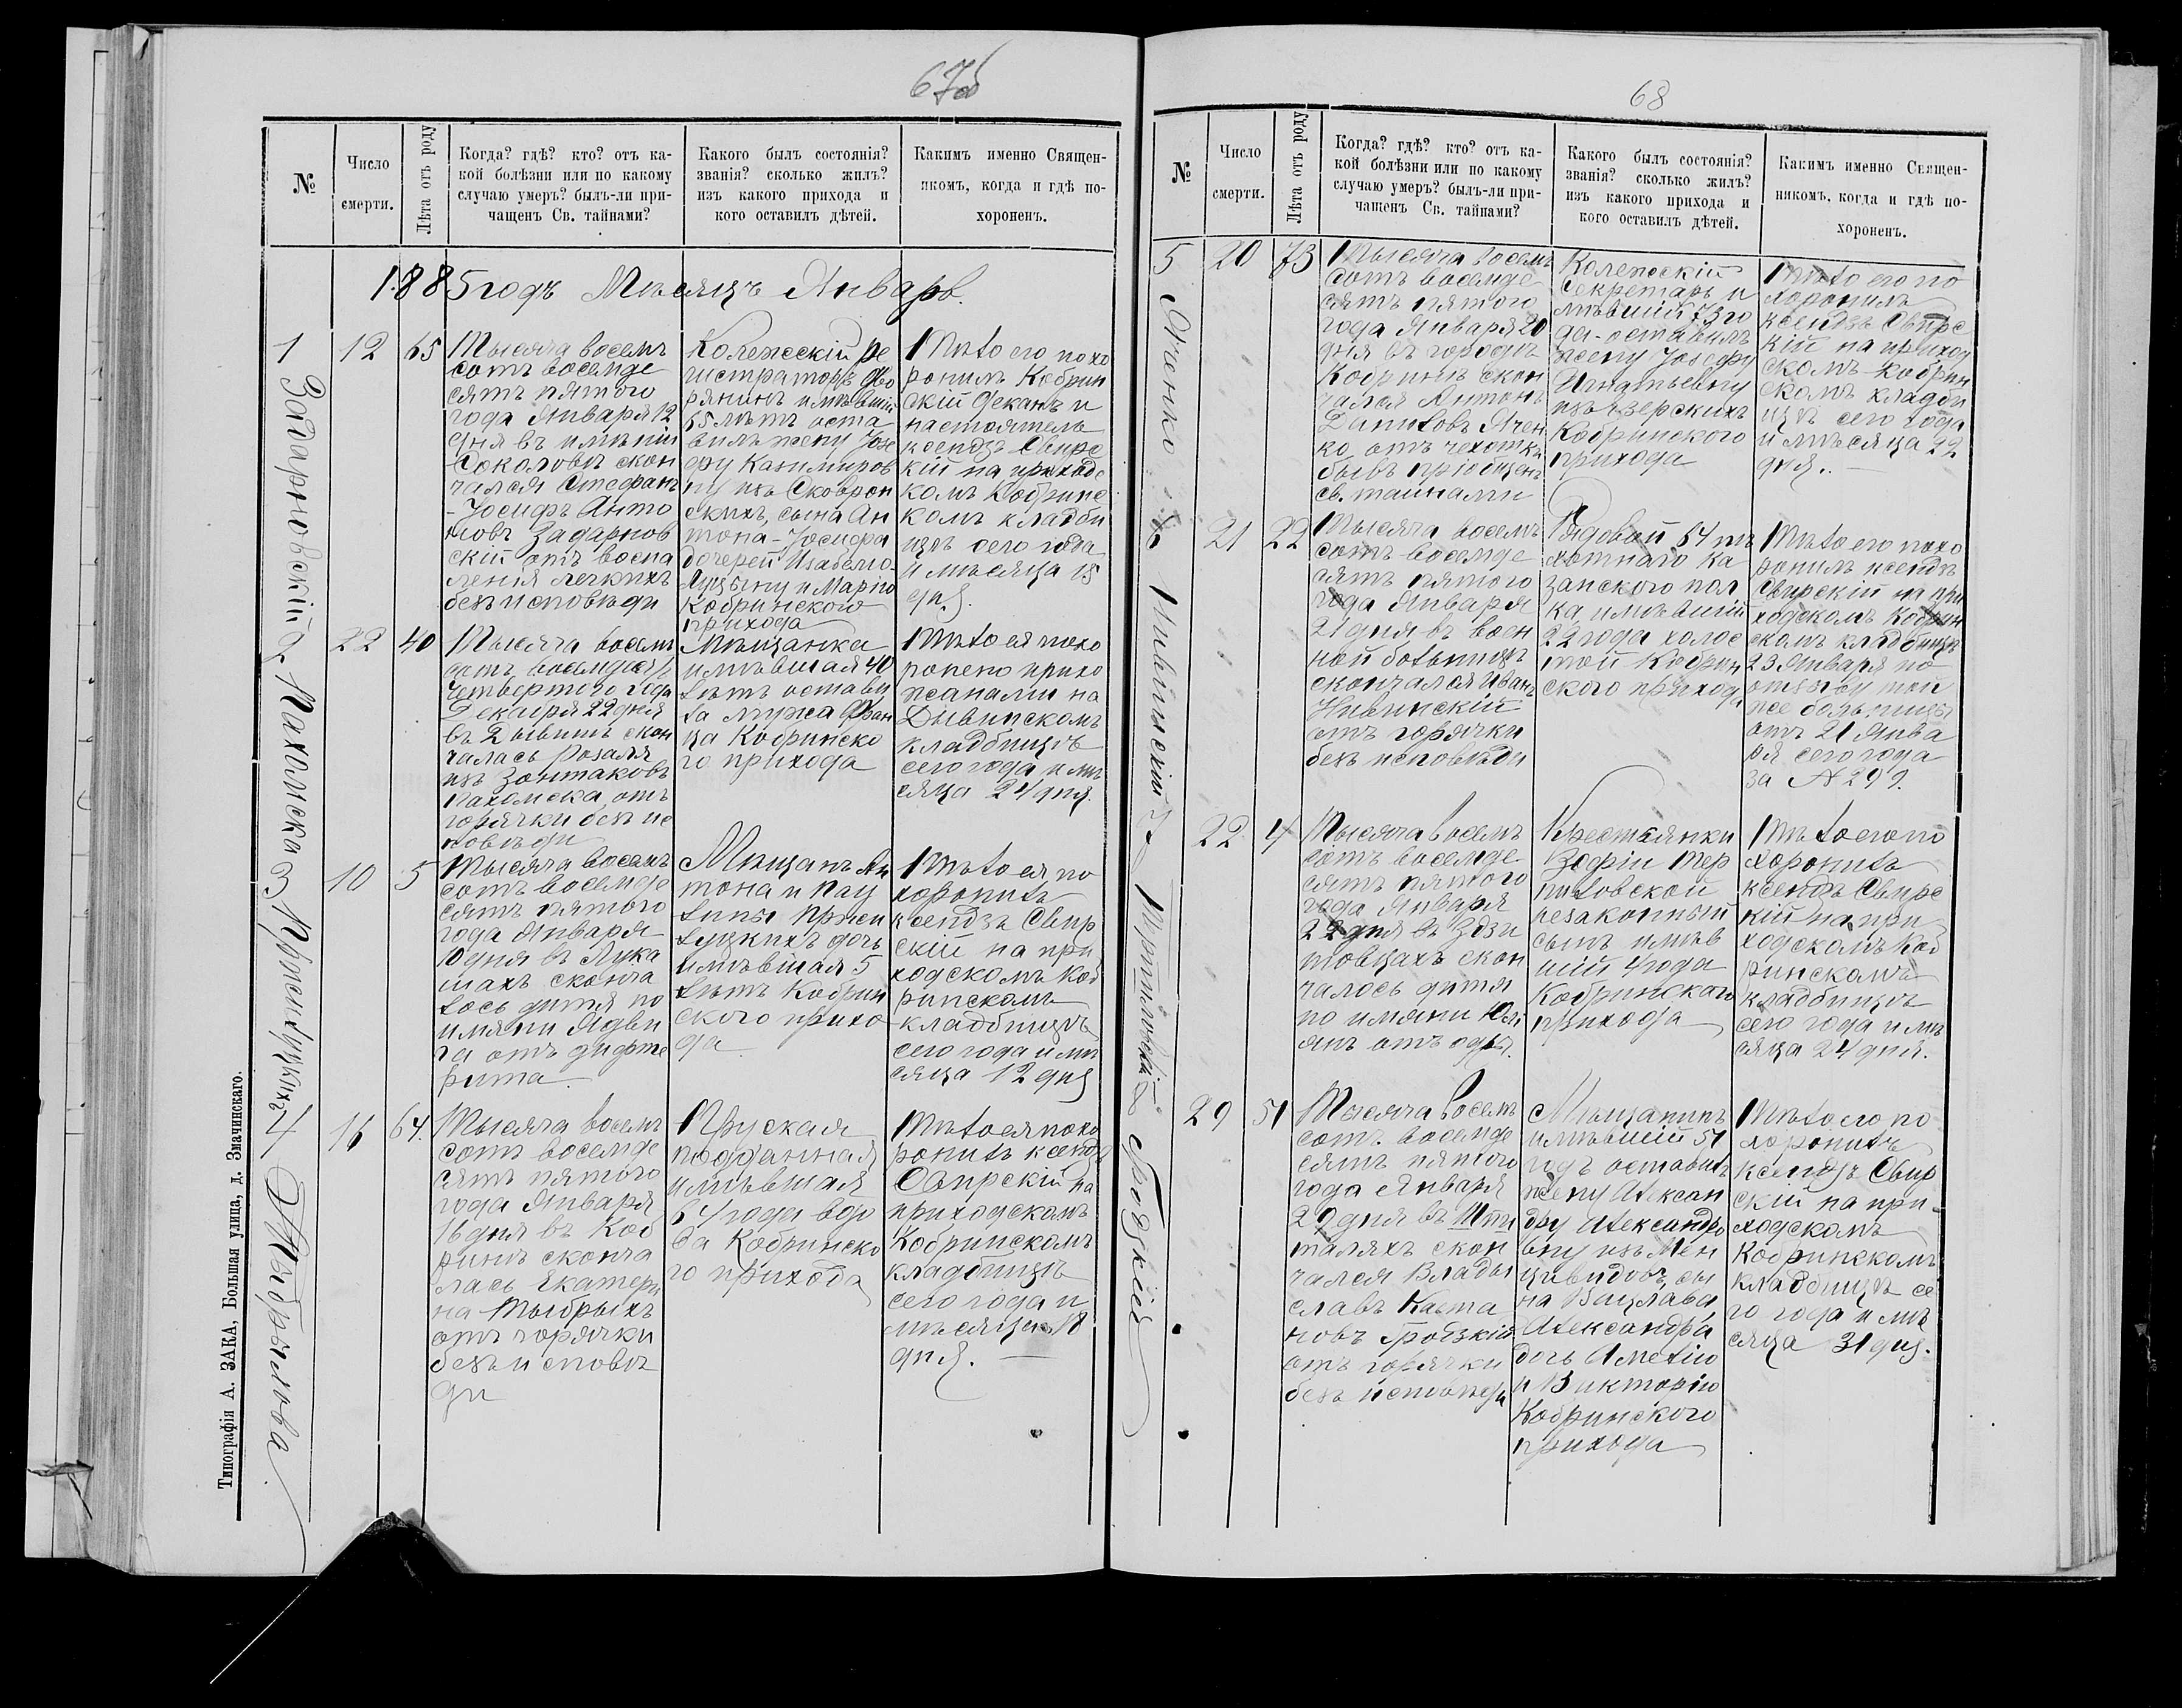 67об
№
Число
смерти.
Лѣта отъ роду
Когда? гдѣ? кто? отъ ка-
кой болѣзни или по какому
случаю умеръ? былъ-ли при-
чащенъ Св. тайнами?
Какого былъ состоянія?
званія? сколько жилъ?
изъ какого прихода и
кого оставилъ дѣтей.
Какимъ именно Священ-
никомъ, когда и гдѣ по-
хороненъ.
1885 годъ Мѣсяцъ Январь.
1
Задарновскій
12
65
Тысяча восемь
сотъ восемде
сятъ пятого
года Января 12
дня въ имѣніи
Соколовѣ скон
чался Стефанъ
-Іосифъ Анто
новъ Задарнов
скій отъ воспа
ленія легкихъ
безъ исповѣди
Колежескій ре
гистраторъ дво
рянинъ имѣвшій
65 лѣтъ оста
вилъ жену Іозе
фу Казимиров
ну изъ Сковрон
скихъ, сына Ан
тона-Іосифа
дочерей Изабеллю
Луцыну и Марію
Кобринского
прихода
Тѣло его похо
ронилъ Кобрин
скій Деканъ и
настоятель
ксендзъ Свирс
кій на приходс
комъ Кобринс
комъ кладби
щѣ сего года
и мѣсяца 15
дня.
2
Пахомска
22
40
Тысяча восемь
сотъ восемдесятъ
четвертого года
Декабря 22 дня
въ Дывинѣ скон
чалась Розалія
изъ Зонтаковъ
Пахомска, отъ
горячки безъ ис
повѣди
Мѣщанка
имѣвшая 40
лѣтъ остави
ла мужа Фран
ца Кобринско
го прихода
Тѣло ея похо
ронено прихо
жанами на
Дывинскомъ
кладбищѣ
сего года и мѣ
сяца 24 дня.
3
10
5
Тысяча восемь
сотъ восемде
сятъ пятого
года Января
10 дня въ Лука
шахъ сконча
лось дитя по
имяни Ядви
га отъ дифте
рита
Мѣщанъ Ан
тона и Пау
лины Пржеи
луцкихъ дочь
имѣвшая 5
лѣтъ Кобрин
ского прихо
да
Тѣло ея по
хоронилъ
ксендзъ Свир
скій на при
ходскомъ Коб
ринскомъ
кладбищѣ
сего года и мѣ
сяца 12 дня
4
Тыбрыхова
16
64.
Тысяча восемь
сотъ восемде
сятъ пятого
года Января
16 дня въ Коб
ринѣ сконча
лась Екатери
на Тыбрыхъ
отъ горячки
безъ исповѣ
ди
Пруская
подданная
имѣвшая
64 года вдо
ва Кобринско
го прихода
Тѣло ея похо
ронилъ ксендзъ
Свирскій на
приходскомъ
Кобринскомъ
кладбищѣ
сего года и
мѣсяца 18
дня.
Типографія А. ЗАКА, Большая улица, д. Змачинскаго.
68
№
Число
смерти.
Лѣта отъ роду
Когда? гдѣ? кто? отъ ка-
кой болѣзни или по какому
случаю умеръ? былъ-ли при-
чащенъ Св. тайнами?
Какого былъ состоянія?
званія? сколько жилъ?
изъ какого прихода и
кого оставилъ дѣтей.
Какимъ именно Священ-
никомъ, когда и гдѣ по-
хороненъ.
5
Яченко
20
73
Тысяча восемь
сотъ восемде
сятъ пятого
года Января 20
дня въ городѣ
Кобринѣ скон
чался Антонъ
Даниловъ Ячен
ко, отъ чехотки
бывъ пріобщенъ
св. тайнами
Колежскій
Секретарь и
мѣвшій 73 го
да - оставилъ
жену Іозефу
Игнатьевну
изъ Езерскихъ
Кобринского
прихода
Тѣло его по
хоронилъ
ксендзъ Свирс
кій на приход
скомъ Кобрин
скомъ кладби
щѣ сего года
и мѣсяца 22
дня.
6
Нивинскій
21
22
Тысяча восемь
сотъ восемде
сятъ пятого
года Января
21 дня въ воен
ной больницѣ
скончался Иванъ
Нивинскій
отъ горячки
безъ исповѣди
Рядовой 64 пѣ
хотного Ка
занского пол
ка, имѣвшій
22 года холос
той Кобрин
ского прихода
Тѣло его похо
ронилъ ксендзъ
Свирскій на при
ходскомъ Кобрин
скомъ кладбищѣ
23 Января по
отзыву той
же больницы
отъ 21 Янва
ря сего года
за № 299.
7
22
4
Тысяча восемь
сотъ восемде
сятъ пятого
года Января
22 дня въ Здзи
товцахъ скон
чалось дитя
по имяни Юлі
янъ отъ одры.
Крестьянки
Зофіи Тер
пиловской
незаконный
сынъ имѣв
шій 4 года
Кобринскаго
прихода
Тѣло его по
хоронилъ
ксендзъ Свирс
кій на при
ходскомъ Коб
ринскомъ
кладбищѣ
сего года и мѣ
сяца 24 дня.
8
Гродзкій
29
51
Тысяча восемь
сотъ восемде
сятъ пятого
года Января
29 дня въ Шпи
таляхъ скон
чался Влады
славъ Каэта
новъ Гродзкій
отъ горячки
безъ исповѣди
Мѣщанинъ
имѣвшій 51
годъ оставилъ
жену Алексан
дру Александро
вну изъ Мен
цивидовъ, сы
на Вацлава
Александра
дочь Амелію
и Викторію
Кобринского
прихода
Тѣло его по
хоронилъ
ксендзъ Свир
скій на при-
ходскомъ
Кобринскомъ
кладбищѣ се
го года и мѣ
сяца 31 дня.